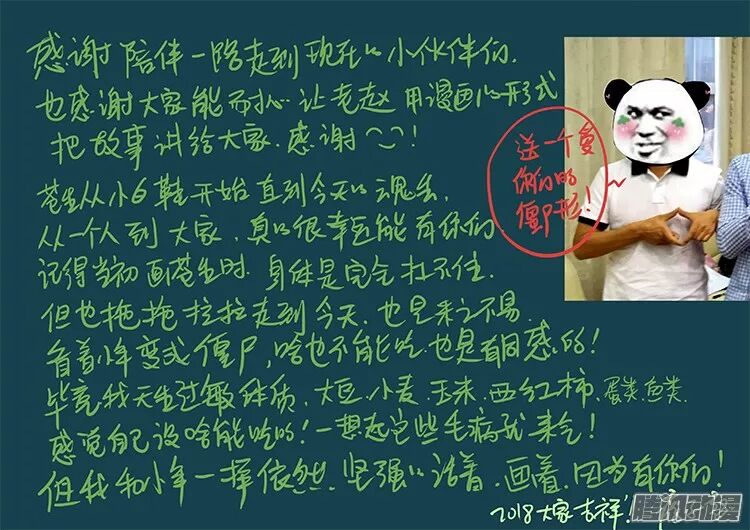 感谢陪伴一路走到现在的小伙伴们.
也感谢大家能耐心让老赵用漫画的形式
把故事讲给大家.感谢^_^!
苍生从小6鞋开始直到今天的魂丢,
从一个人到大家,真的很幸运能有你们
记得当初画苍生时.身体是完全扛不住.
但也拖拖拉拉走到今天.也是来之不易.
看着小年变成僵尸,啥也不能吃.也是有同感的!
毕竟我天生过敏体质,大豆.小麦.玉米.西红柿.蛋类.鱼类.
感觉自己没啥能吃的!一想起这些毛病就来气!
但我和小年一样依然.坚强的活着.画着.因为有你们!
2018大家吉祥!
送一个爱
你们的
僵尸形!
腾讯动漫